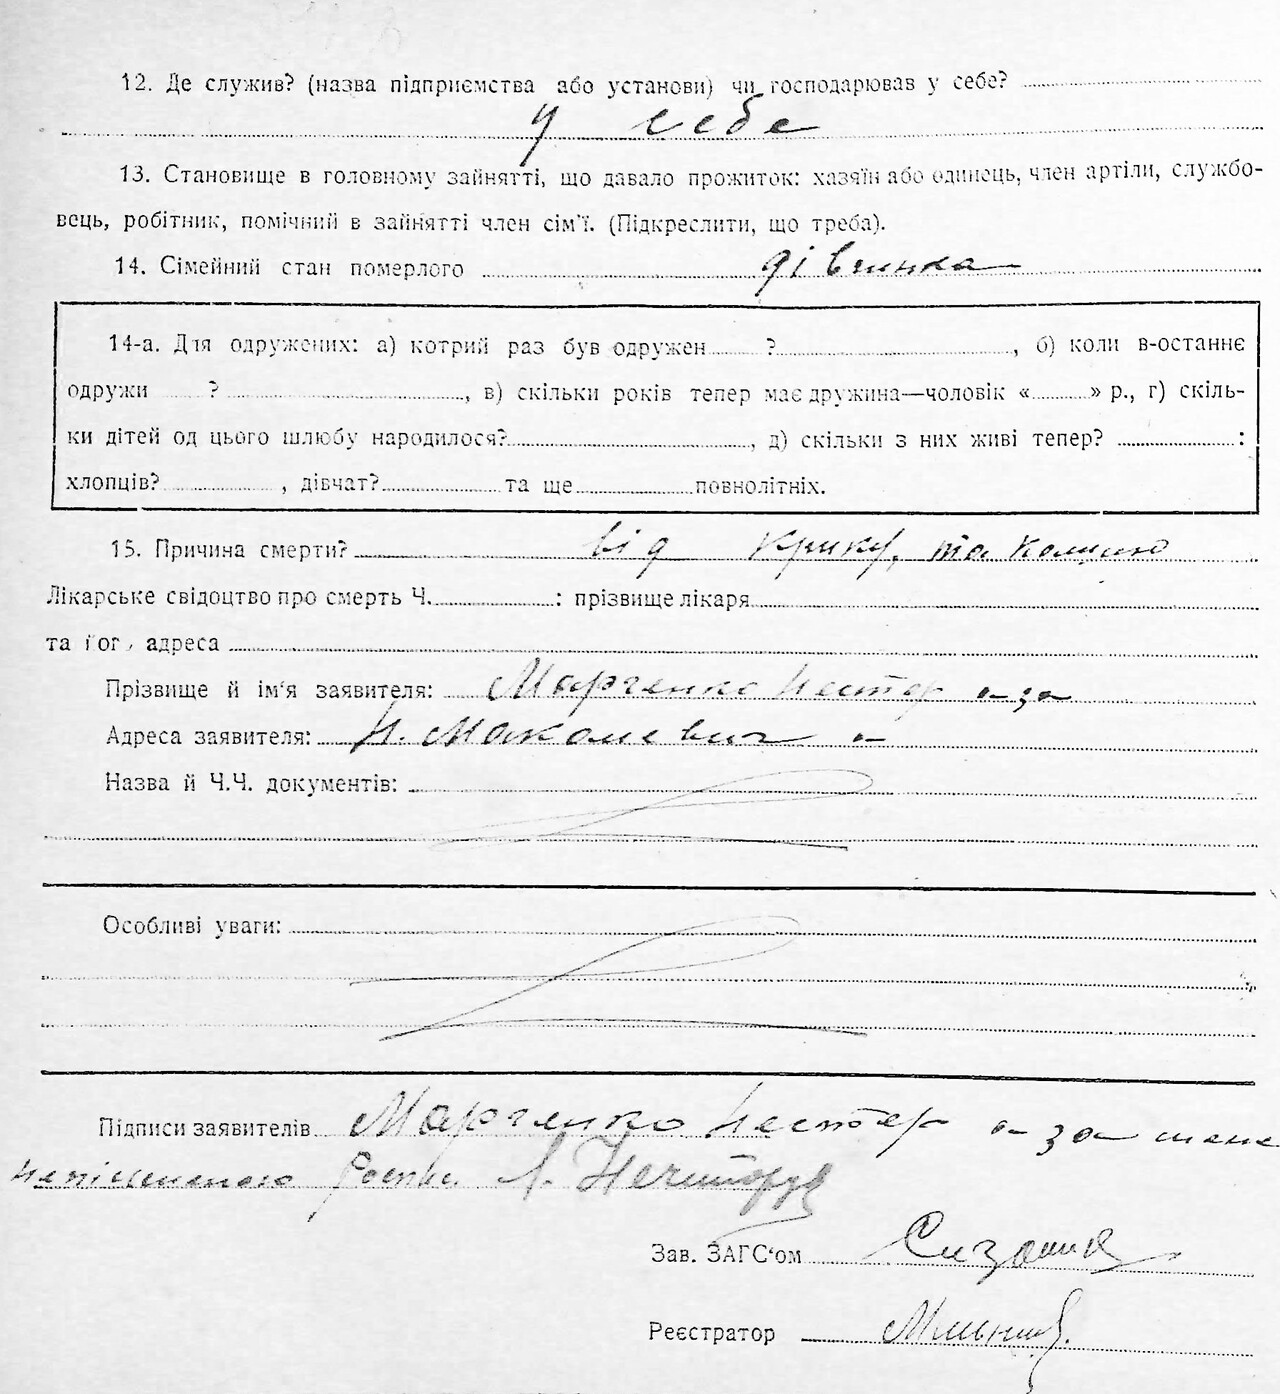 12. Де служив? (назва підприємства або установи) чи господарював у себе?
у себе
13. Становище в головному зайнятті, що давало прожиток: хазяїн або одинець, член артіли, службо-
вець, робітник, помічний в зайнятті член сім'ї. (Підкреслити, що треба).
14. Сімейний стан померлого дівчинка
14-а. Для одружених: а) котрий раз був одружен ?, б) коли в-останнє
одружи ?, в) скільки років тепер має дружина—чоловік « » р., г) скіль-
ки дітей од цього шлюбу народилося?, д) скільки з них живі тепер? :
хлопців?, дівчат? та ще повнолітніх.
15. Причина смерти? від крику, та
Лікарське свідоцтво про смерть Ч. : прізвище лікаря
та йог, адреса
Прізвище й ім'я заявителя: Марченко Нестор а за
Адреса заявителя: Н. Макалевич
Назва й Ч.Ч. документів:
Особливі уваги:
Підписи заявителів Марченко Нестер а за мене
неписменого роспис.
Зав. ЗАГС'ом
Реєстратор